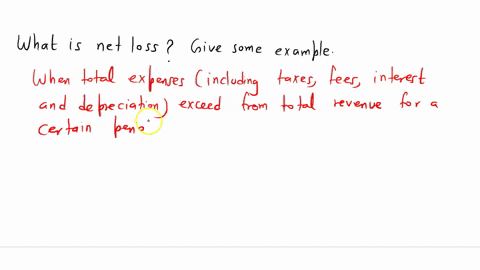 What is net loss? Give some example.
When total expenses (including taxes, fees, interest
and depreciation) exceed from total revenue for a
certain